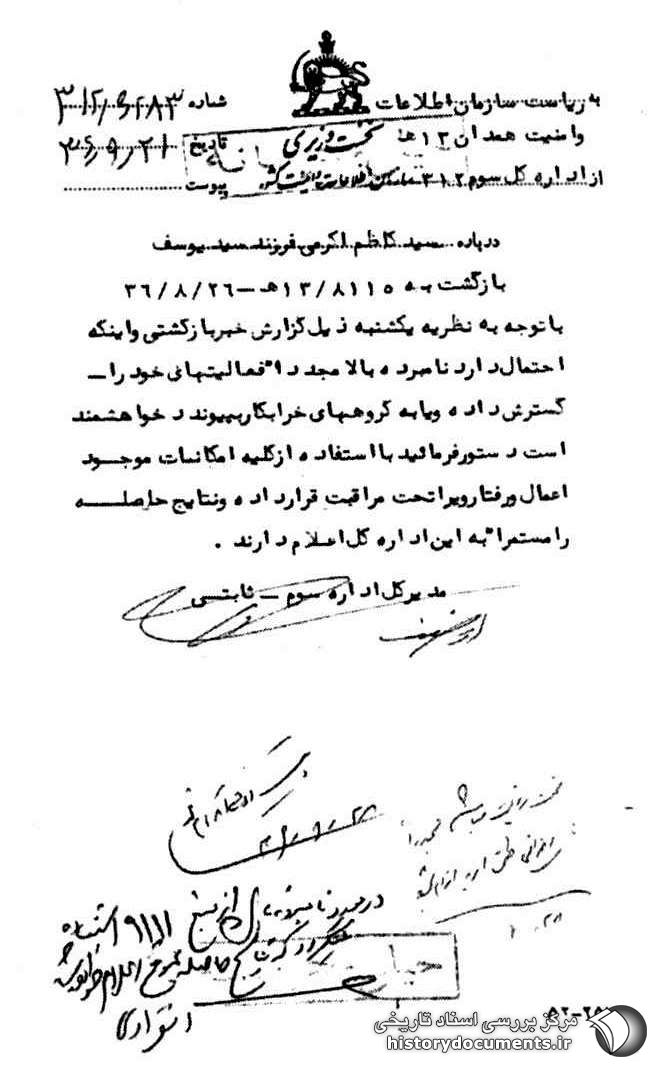 به ریاست سازمان اطلاعات
شماره ۳۱۲/۶۴۸۳
و امنیت همدان ۱۳ ها
نخست وزیری
تاریخ ۳۶/۹/۲۱
از اداره کل سوم ۳۱۲ سازمان اطلاعات و امنیت کشور
پیوست
درباره سید کاظم اکرمی فرزند سید یوسف
بازگشت به ۱۳/۸۱۱۵ ه‍ – ۳۶/۸/۲۶
با توجه به نظریه یکشنبه ذیل گزارش خبر بازگشتی و اینکه
احتمال دارد نامبرده بالا مجدداً فعالیتهای خود را –
گسترش داده و یا به گروههای خرابکار بپیوندد خواهشمند
است دستور فرمائید با استفاده از کلیه امکانات موجود
اعمال و رفتار ویرا تحت مراقبت قرار داده و نتایج حاصله
را مستمراً به این اداره کل اعلام دارند .
مدیر کل اداره سوم – ثابتی
در مورد نامبرده از منبع ۹۱۱۱ استفاده
حاصله اعلام
مرکز بررسی اسناد تاریخی
historydocuments.ir